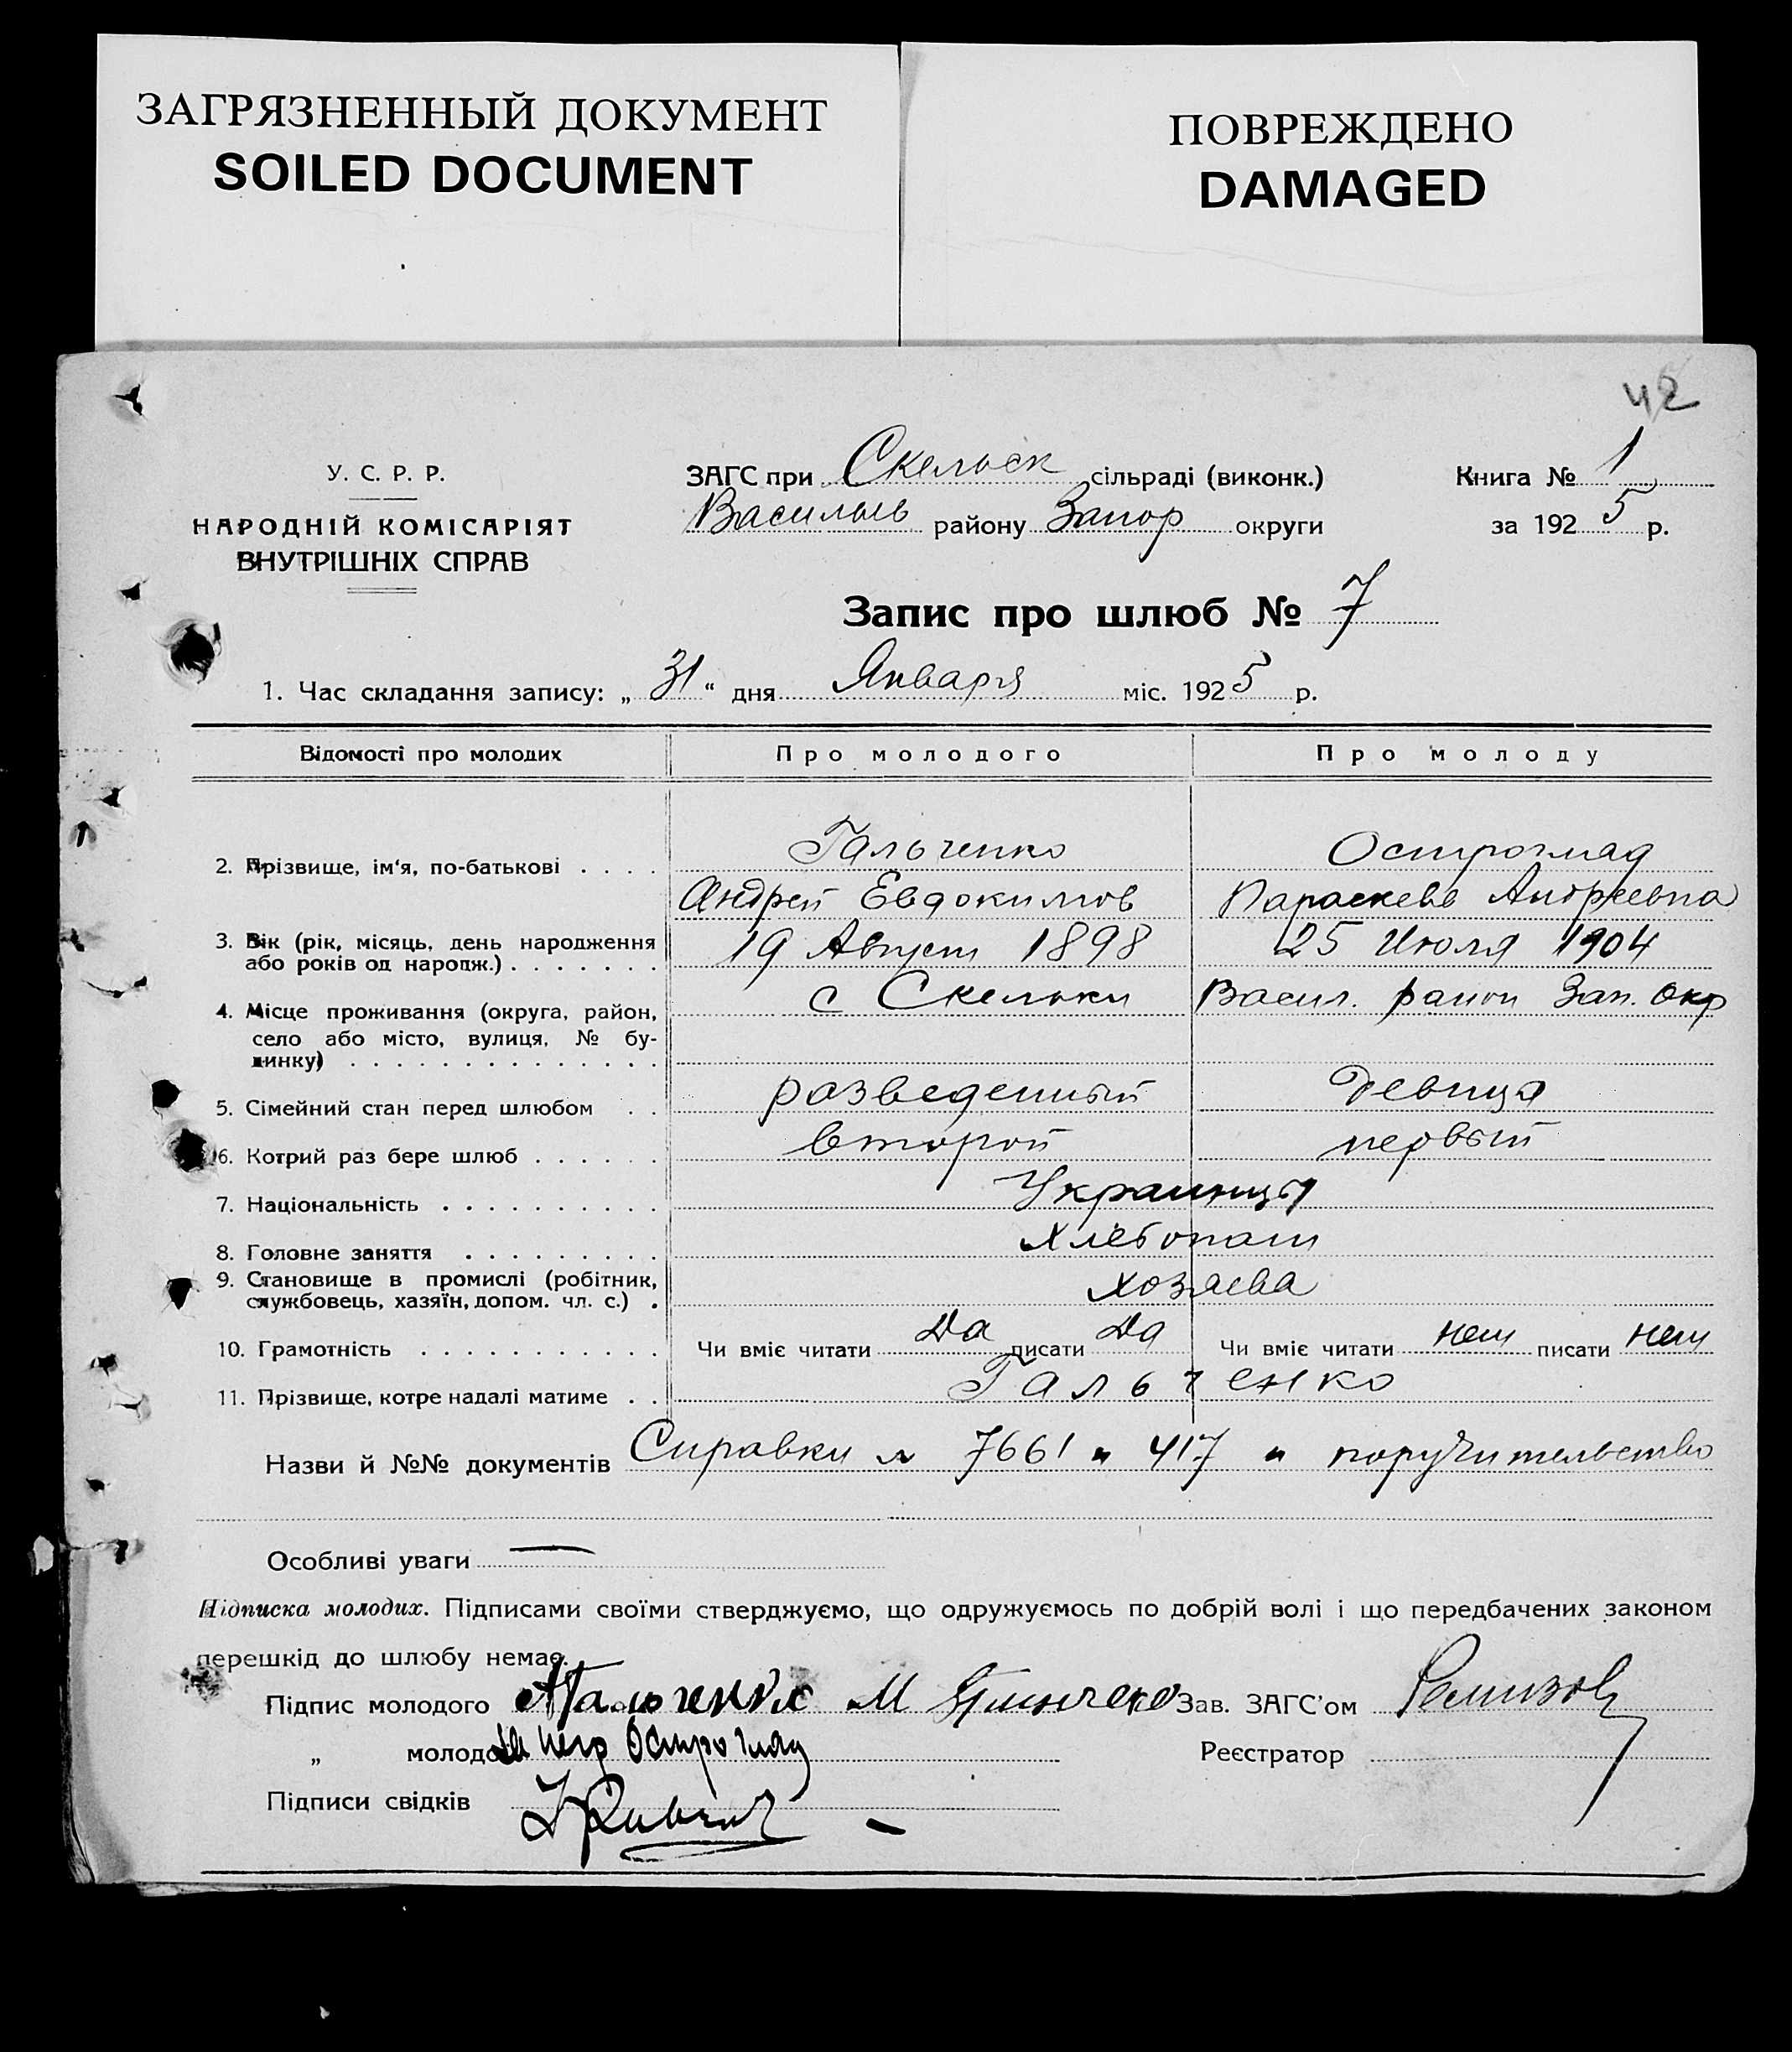 ЗАГРЯЗНЕННЫЙ ДОКУМЕНТ
SOILED DOCUMENT
ПОВРЕЖДЕНО
DAMAGED
42
У. С. Р. Р.
НАРОДНІЙ КОМІСАРІЯТ
ВНУТРІШНІХ СПРАВ
ЗАГС при Скельск сільраді (виконк.)
Васильев району Запор округи
Книга № 1
за 1925 р.
Запис про шлюб № 7
1. Час складання запису: „31“ дня Января міс. 1925 р.
Відомості про молодих Про молодого Про молоду
2. Прізвище, ім'я, по-батькові . . . . Гальченко Остроглад
Андрей Евдокимов Параскева Андреевна
3. Вік (рік, місяць, день народження 19 Август 1898 25 Июля 1904
або років од народж.) . . . . . . .
4. Місце проживання (округа, район, с Скельки Васил. район Зап. Окр
село або місто, вулиця, № бу-
динку) . . . . . . . . . . . . . .
5. Сімейний стан перед шлюбом . . разведенный девица
6. Котрий раз бере шлюб . . . . . . второй первый
7. Національність . . . . . . . . . . Украинцы
8. Головне заняття . . . . . . . . . Хлебопаш
9. Становище в промислі (робітник, хозяева
службовець, хазяїн, допом. чл. с.) .
10. Грамотність . . . . . . . . . . . Чи вміє читати Да писати Да Чи вміє читати нет писати нет
11. Прізвище, котре надалі матиме . . Гальченко
Назви й №№ документів Справки № 7661 и 417 и поручительство
Особливі уваги —
Підписка молодих. Підписами своїми стверджуємо, що одружуємось по добрій волі і що передбачених законом
перешкід до шлюбу немає.
Підпис молодого АГальченко М Зав. ЗАГС'ом Ремизов
„ молодої за нег Остроглад Реєстратор
Підписи свідків